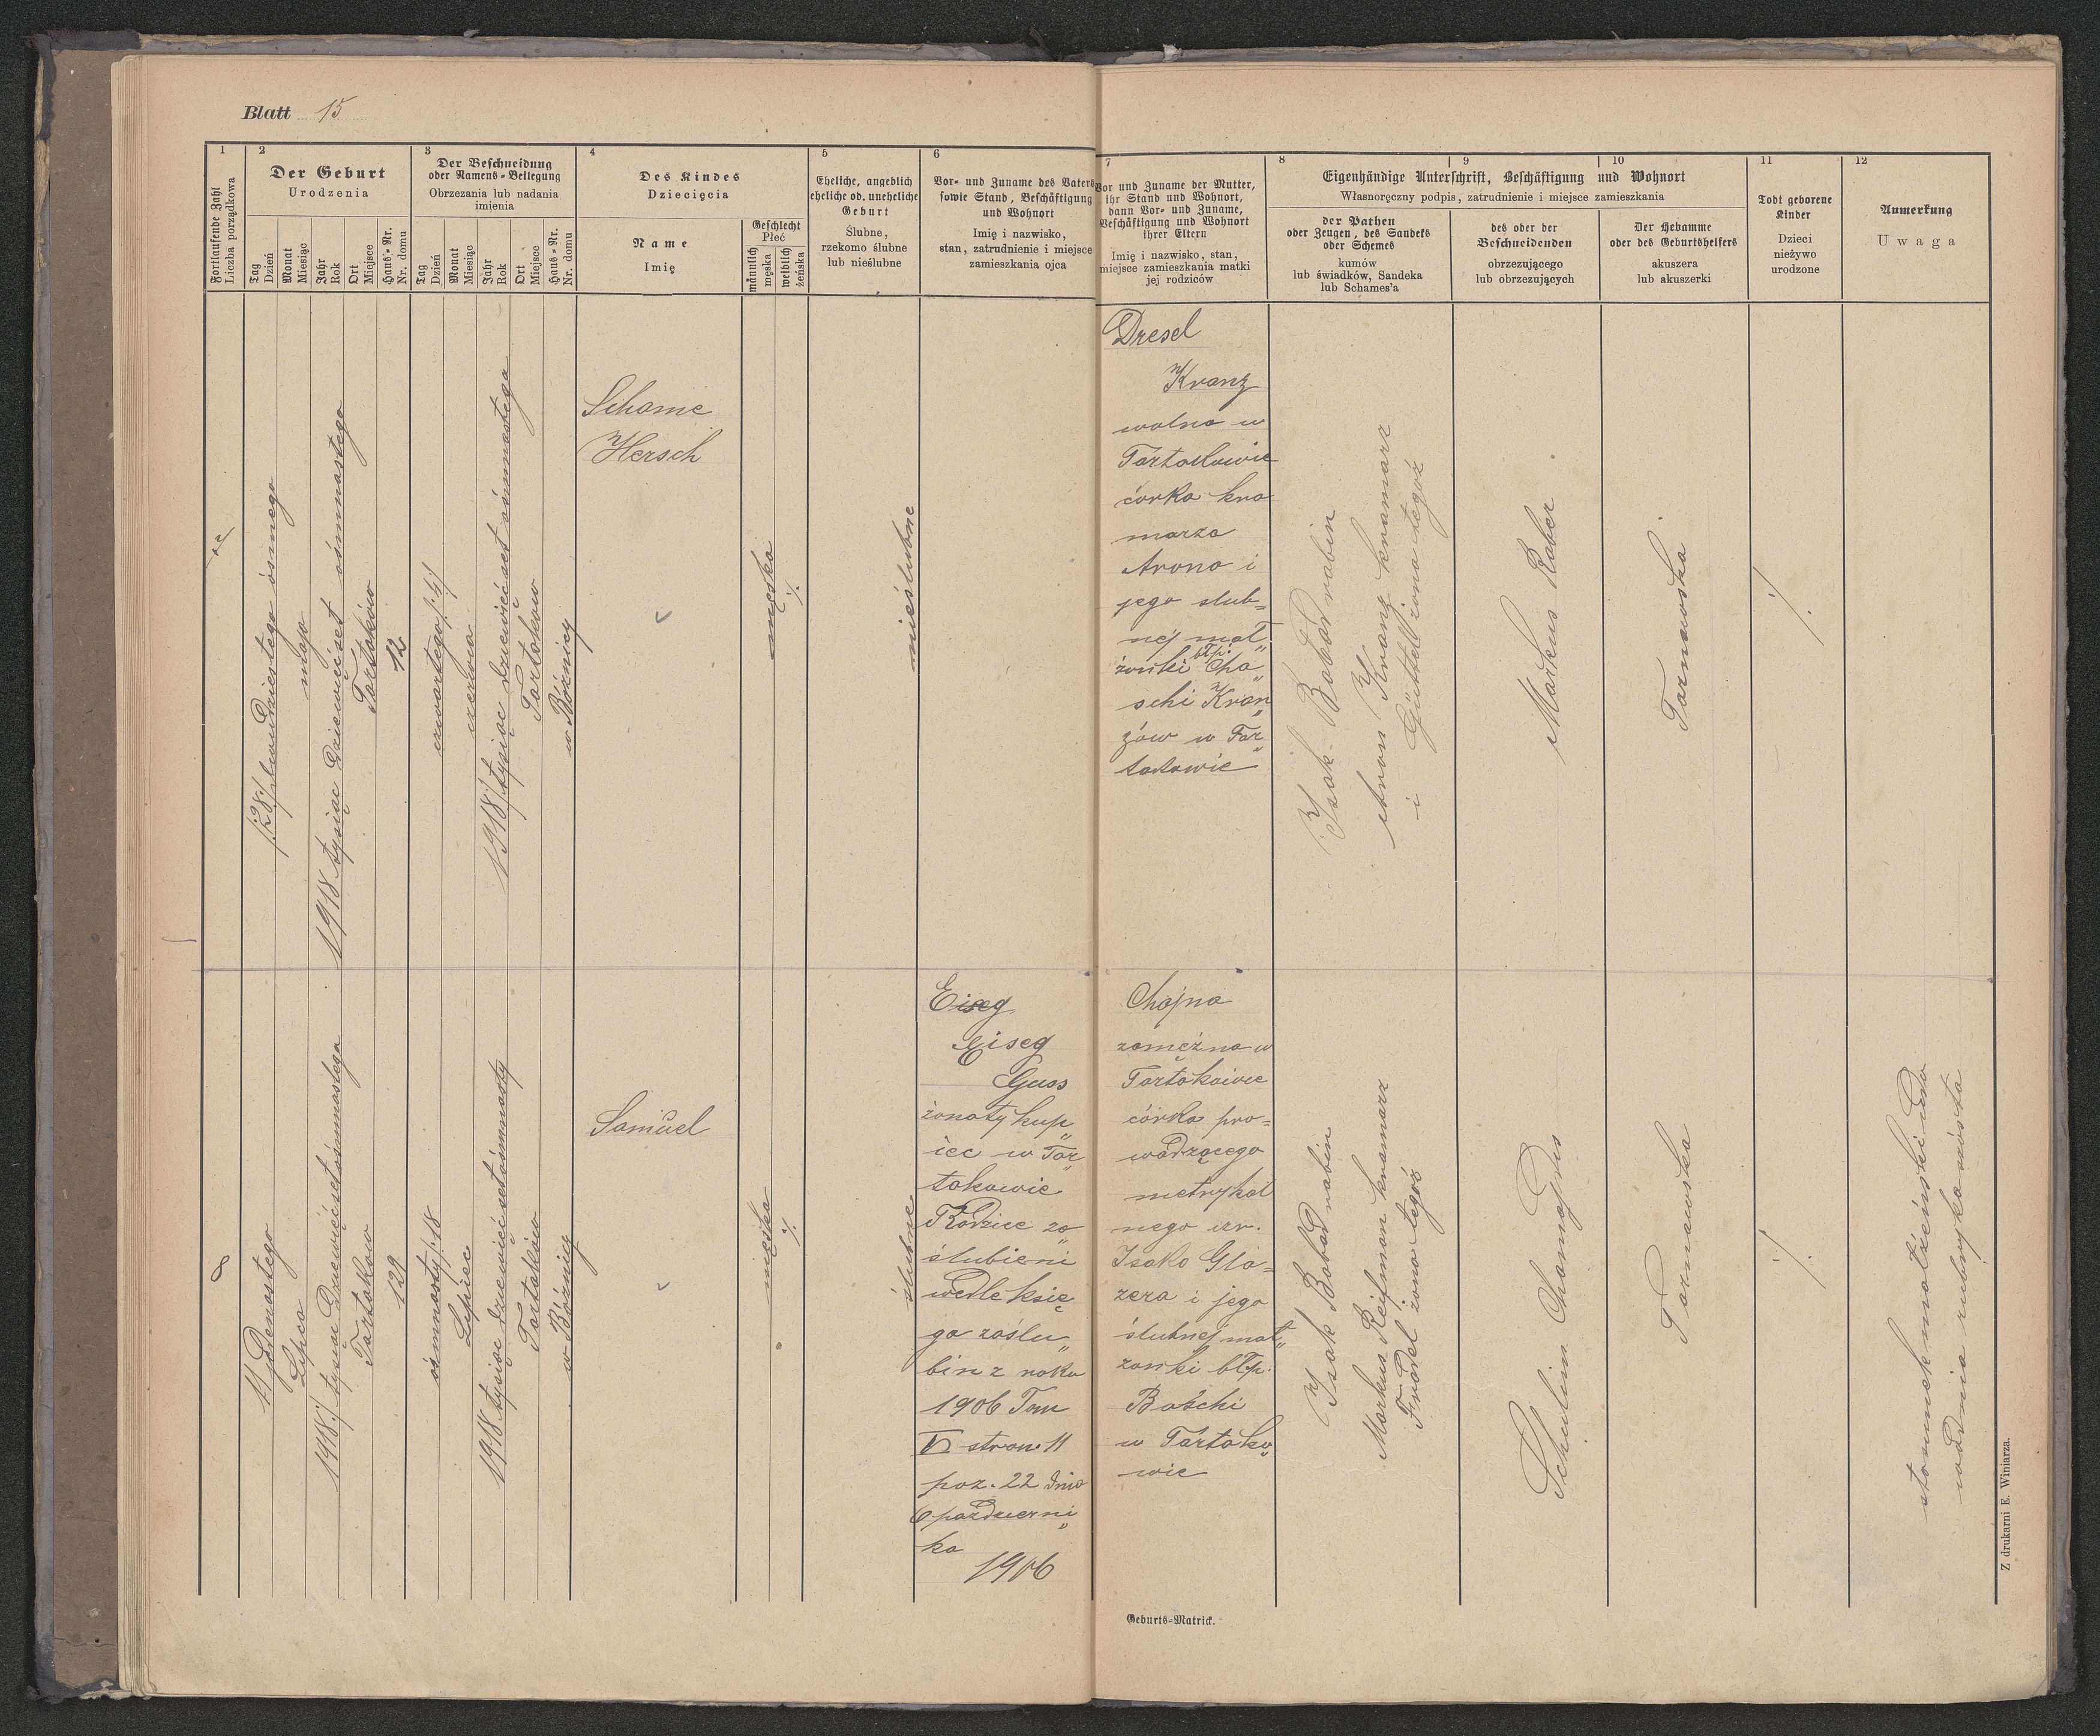 Blatt 15
1
Fortlaufende Zahl
Liczba porządkowa
2
Der Geburt
Urodzenia
Tag
Dzień
Monat
Miesiąc
Jahr
Rok
Ort
Miejsce
Haus-Nr.
Nr. domu
3
Der Beschneidung
oder Namens-Beilegung
Obrzezania lub nadania
imienia
Tag
Dzień
Monat
Miesiąc
Jahr
Rok
Ort
Miejsce
Haus-Nr.
Nr. domu
4
Des Kindes
Dziecięcia
Name
Imię
Geschlecht
Płeć
männlich
męska
weiblich
żeńska
5
Eheliche, angeblich
eheliche od. uneheliche
Geburt
Ślubne,
rzekomo ślubne
lub nieślubne
6
Vor- und Zuname des Vaters
sowie Stand, Beschäftigung
und Wohnort
Imię i nazwisko,
stan, zatrudnienie i miejsce
zamieszkania ojca
7
Vor und Zuname der Mutter,
ihr Stand und Wohnort,
dann Vor- und Zuname,
Beschäftigung und Wohnort
ihrer Eltern
Imię i nazwisko, stan,
miejsce zamieszkania matki
jej rodziców
8
9
10
Eigenhändige Unterschrift, Beschäftigung und Wohnort
Własnoręczny podpis, zatrudnienie i miejsce zamieszkania
der Pathen
oder Zeugen, des Sandeks
oder Schemes
kumów
lub świadków, Sandeka
lub Schames'a
des oder der
Beschneidenden
obrzezującego
lub obrzezujących
Der Hebamme
oder des Geburtshelfers
akuszera
lub akuszerki
11
Todt geborene
Kinder
Dzieci
nieżywo
urodzone
12
Anmerkung
Uwaga
7
/:28:/ dwudziestego ósmego
maja
1918 tysiąc dziewięćset ósmnastego
Tartaków
12
czwartego /:4:/
czerwca
1918/ tysiąc dziewięćset ósmnastego
Tartaków
w Bóżnicy
Schame
Hersch
męska
./.
nieślubne
Dresel
Kranz
wolna w
Tartakowie
córka kra
marza
Arona i
jego ślub=
nej mał"
żonki błp. Cha"
schi Kran"
zów w Tar"
takowie
Isak Babad rabin
Aron Kranz kramarz
i Güttel żona tegoż
Markus Raber
Tarnawska
./.
8
11 Jedenastego
Lipca
1918:/ tysiąc dziewięćset ósmnastego
Tartaków
129
ósmnasty /:18
Lipiec
1918 tysiąc dziewięćset ósmnasty
Tartaków
w Bóżnicy
Samuel
męska
./.
ślubne
Eiseg
Eiseg
Guss
żonaty kup"
iec w Tar"
takowie
Rodzice za"
ślubieni
wedle księ
ga zaślu"
bin z roku
1906 Tom
VI stron 11
poz. 22 dnia
6 październi"
ka
1906
Chajna
zamężna w
Tartakowie
córka pro=
wadzącego
metrykal
nego izr.
Isaka Gla=
zera i jego
ślubnej mał"
żonki błp.
Baschi
w Tartako"
wie
Isak Babad rabin
Markus Reifman kramarz
Fradel żona tegoż
Schulim
Tarnawska
./.
stosunek małżeński udo
wadnia rubryka szósta
Geburts-Matrick.
Z drukarni E. Winiarza.